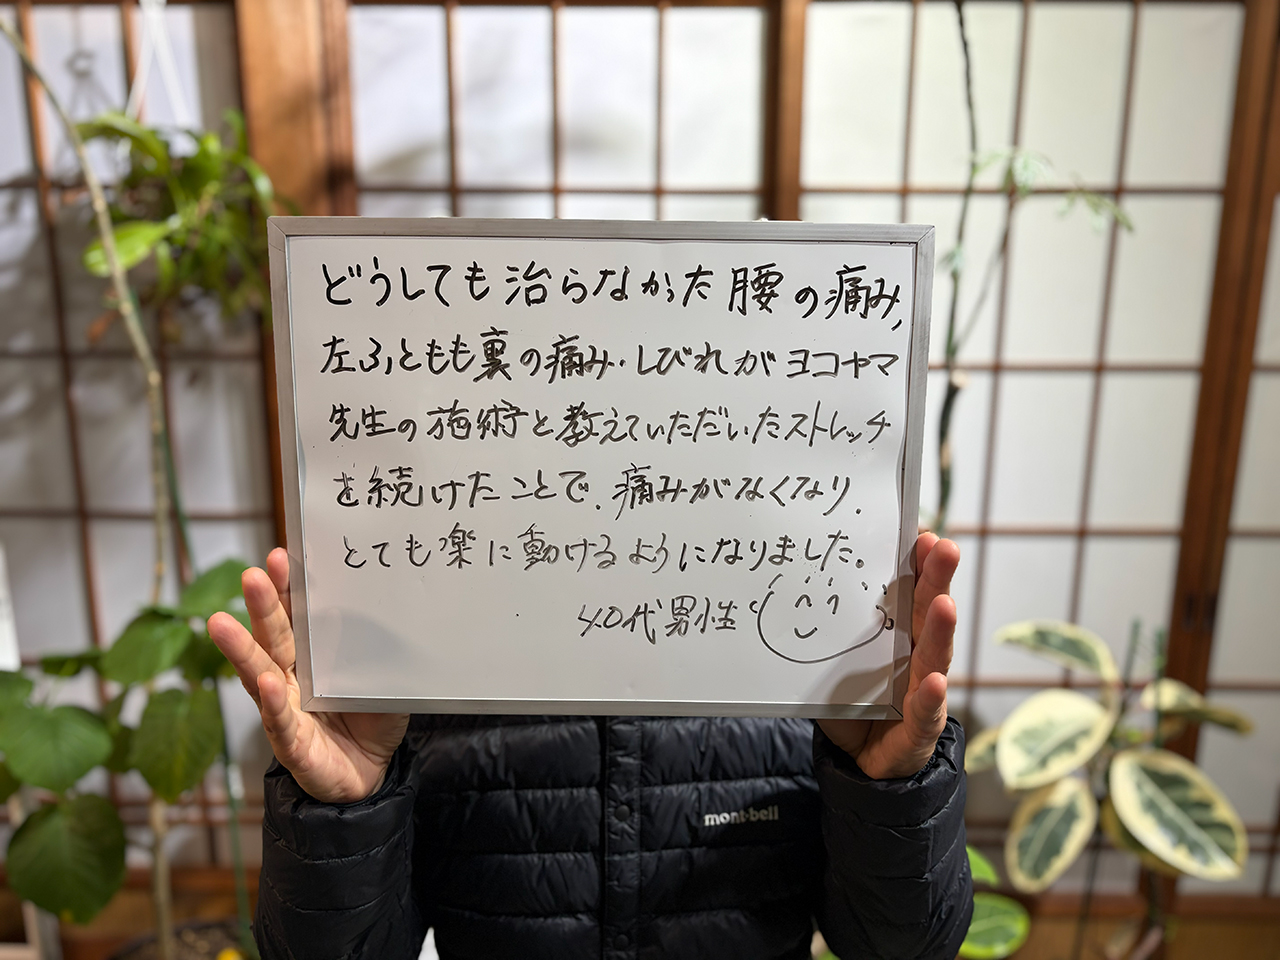 どうしても治らなかった腰の痛み,
左ふとももも裏の痛み・しびれがヨコヤマ
先生の施術と教えていただいたストレッチ
を続けたことで、痛みがなくなり、
とても楽に動けるようになりました。
40代男性
mont-bell